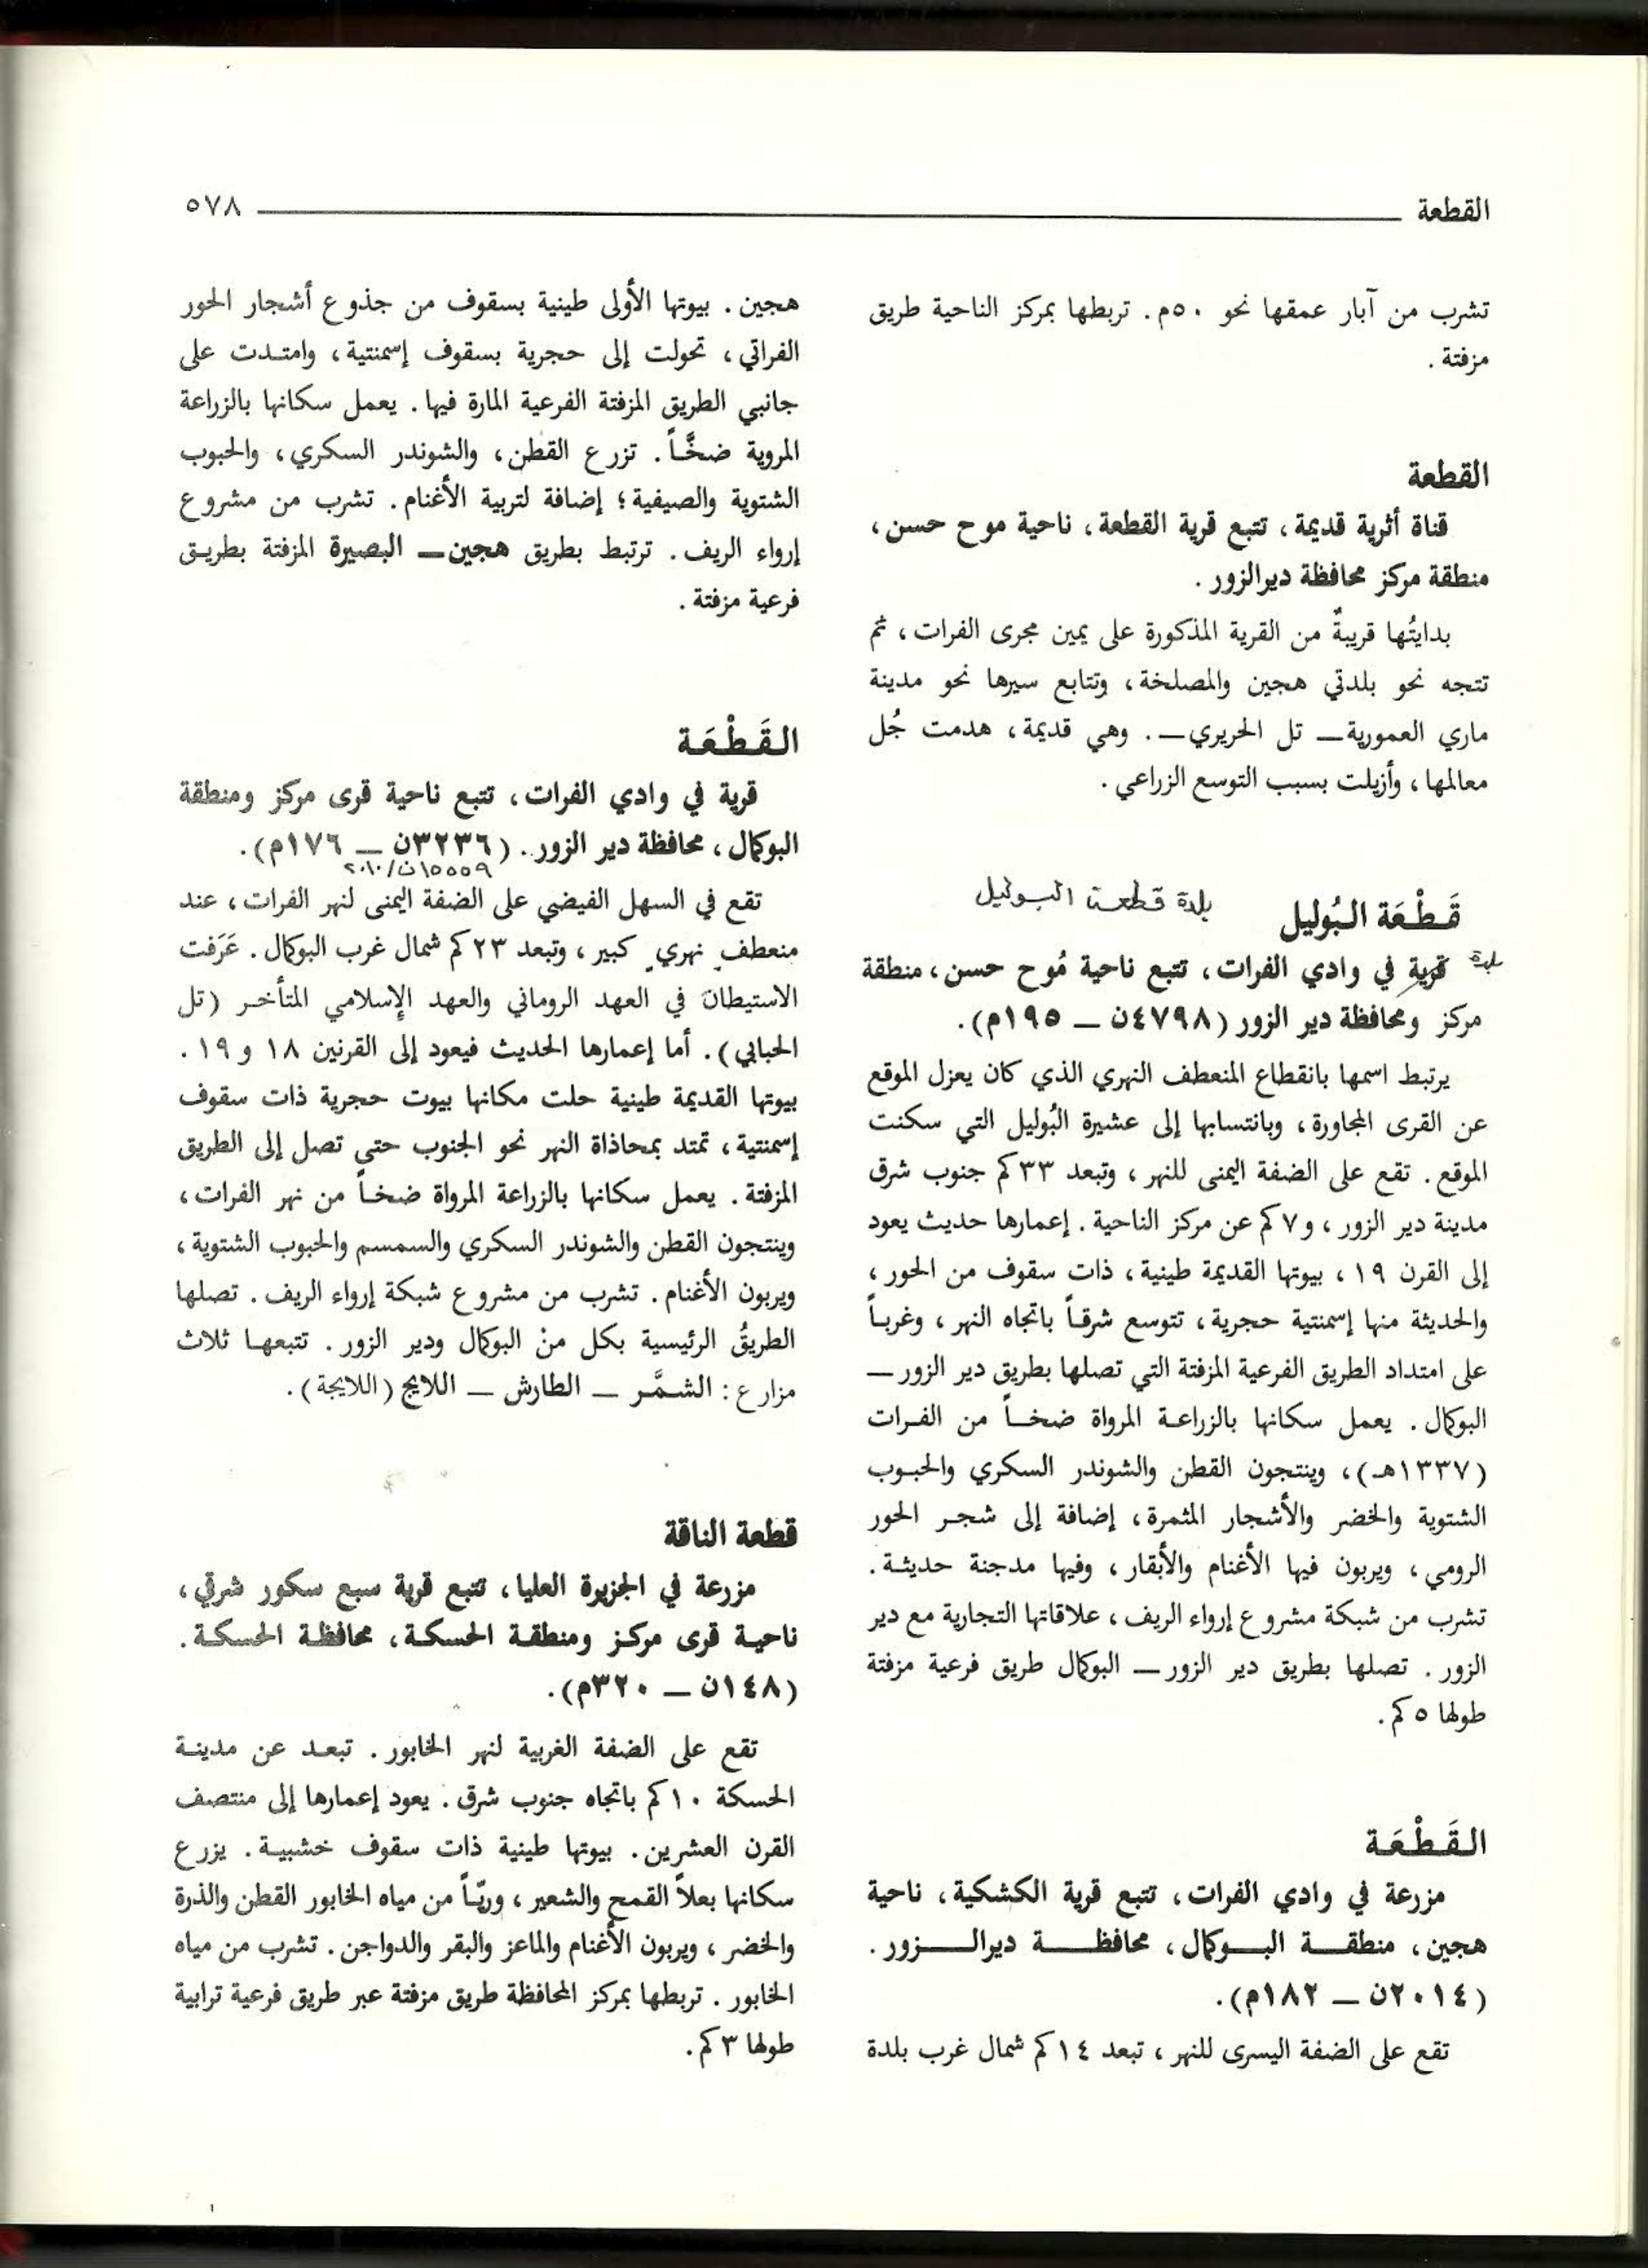 القطعة ٥٧٨
تشرب من آبار عمقها نحو ٥٠م. تربطها بمركز الناحية طريق
مزفتة.
القطعة
قناة أثرية قديمة، تتبع قرية القطعة، ناحية موح حسن،
منطقة مركز محافظة ديرالزور.
بدايتُها قريبةٌ من القرية المذكورة على يمين مجرى الفرات، ثم
تتجه نحو بلدتي هجين والمصلخة، وتتابع سيرها نحو مدينة
ماري العمورية — تل الحريري —. وهي قديمة، هدمت جُل
معالمها، وأزيلت بسبب التوسع الزراعي.
قَطْعَة البُوليل بلدة قطعة البوليل
بلدة قرية في وادي الفرات، تتبع ناحية مُوح حسن، منطقة
مركز ومحافظة دير الزور (٤٧٩٨ن — ١٩٥م).
يرتبط اسمها بانقطاع المنعطف النهري الذي كان يعزل الموقع
عن القرى المجاورة، وبانتسابها إلى عشيرة البُوليل التي سكنت
الموقع. تقع على الضفة اليمنى للنهر، وتبعد ٣٣كم جنوب شرق
مدينة دير الزور، و٧كم عن مركز الناحية. إعمارها حديث يعود
إلى القرن ١٩، بيوتها القديمة طينية، ذات سقوف من الحور،
والحديثة منها إسمنتية حجرية، تتوسع شرقاً باتجاه النهر، وغرباً
على امتداد الطريق الفرعية المزفتة التي تصلها بطريق دير الزور —
البوكمال. يعمل سكانها بالزراعة المرواة ضخاً من الفرات
(١٣٣٧هـ)، وينتجون القطن والشوندر السكري والحبوب
الشتوية والخضر والأشجار المثمرة، إضافة إلى شجر الحور
الرومي، ويربون فيها الأغنام والأبقار، وفيها مدجنة حديثة.
تشرب من شبكة مشروع إرواء الريف، علاقاتها التجارية مع دير
الزور. تصلها بطريق دير الزور — البوكمال طريق فرعية مزفتة
طولها ٥كم.
القَطْعَة
مزرعة في وادي الفرات، تتبع قرية الكشكية، ناحية
هجين، منطقة البوكمال، محافظة ديرالزور.
(٢٠١٤ن — ١٨٢م).
تقع على الضفة اليسرى للنهر، تبعد ١٤كم شمال غرب بلدة
هجين. بيوتها الأولى طينية بسقوف من جذوع أشجار الحور
الفراتي، تحولت إلى حجرية بسقوف إسمنتية، وامتدت على
جانبي الطريق المزفتة الفرعية المارة فيها. يعمل سكانها بالزراعة
المروية ضخَّاً. تزرع القطن، والشوندر السكري، والحبوب
الشتوية والصيفية؛ إضافة لتربية الأغنام. تشرب من مشروع
إرواء الريف. ترتبط بطريق هجين — البصيرة المزفتة بطريق
فرعية مزفتة.
القَطْعَة
قرية في وادي الفرات، تتبع ناحية قرى مركز ومنطقة
البوكمال، محافظة دير الزور. (٣٢٣٦ن — ١٧٦م).
١٥٥٥٩ن/٢٠١٠
تقع في السهل الفيضي على الضفة اليمنى لنهر الفرات، عند
منعطفٍ نهريٍ كبير، وتبعد ٢٣كم شمال غرب البوكمال. عَرَفت
الاستيطانَ في العهد الروماني والعهد الإسلامي المتأخر (تل
الحبابي). أما إعمارها الحديث فيعود إلى القرنين ١٨ و١٩.
بيوتها القديمة طينية حلت مكانها بيوت حجرية ذات سقوف
إسمنتية، تمتد بمحاذاة النهر نحو الجنوب حتى تصل إلى الطريق
المزفتة. يعمل سكانها بالزراعة المرواة ضخاً من نهر الفرات،
وينتجون القطن والشوندر السكري والسمسم والحبوب الشتوية،
ويربون الأغنام. تشرب من مشروع شبكة إرواء الريف. تصلها
الطريقُ الرئيسية بكل منْ البوكمال ودير الزور. تتبعها ثلاث
مزارع: الشمَّر — الطارش — اللايج (اللايجة).
قطعة الناقة
مزرعة في الجزيرة العليا، تتبع قرية سبع سكور شرقي،
ناحية قرى مركز ومنطقة الحسكة، محافظة الحسكة.
(١٤٨ن — ٣٢٠م).
تقع على الضفة الغربية لنهر الخابور. تبعد عن مدينة
الحسكة ١٠كم باتجاه جنوب شرق. يعود إعمارها إلى منتصف
القرن العشرين. بيوتها طينية ذات سقوف خشبية. يزرع
سكانها بعلاً القمح والشعير، وريّاً من مياه الخابور القطن والذرة
والخضر، ويربون الأغنام والماعز والبقر والدواجن. تشرب من مياه
الخابور. تربطها بمركز المحافظة طريق مزفتة عبر طريق فرعية ترابية
طولها ٣كم.